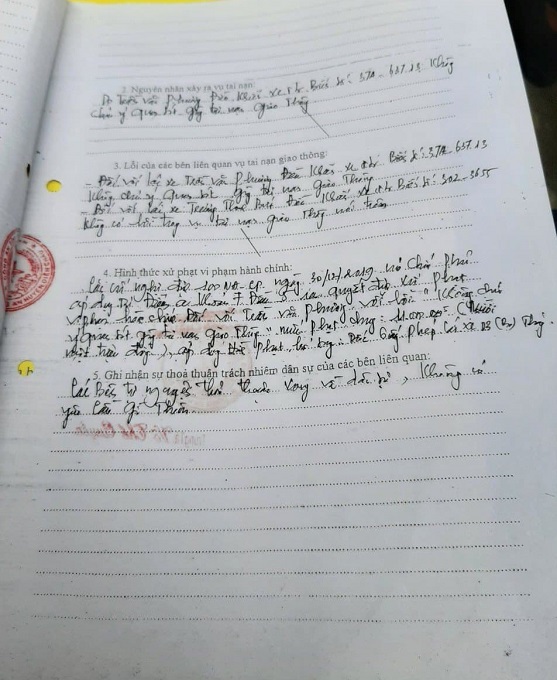 2. Nguyên nhân xảy ra vụ tai nạn:
Trần văn Phương Điều Khiển xe ôtô Biển số: 37A - 637.13 Không
chú ý quan sát gây tai nạn giao Thông
3. Lỗi của các bên liên quan vụ tai nạn giao thông:
- Đối với lái xe Trần văn Phương Điều Khiển xe ôtô Biển số: 37A - 637.13
Không chú ý quan sát gây tai nạn giao Thông
- Đối với lái xe Trương Thái điều Khiển xe ôtô Biển số: 30Z - 3655
Không có lỗi trong vụ tai nạn giao Thông nói trên
4. Hình thức xử phạt vi phạm hành chính:
Căn cứ nghị định 100/NĐ-CP ngày 30/12/2019 của Chính Phủ
áp dụng Khoản 7 Điều 5 ra quyết định xử phạt
vi phạm hành chính Đối với Trần văn Phương với lỗi "Không chú
ý quan sát gây tai nạn giao Thông" mức phạt chung: 11.000.000đ (Mười
một triệu đồng), áp dụng Giấy phép lái xe 03 (Ba) Tháng.
5. Ghi nhận sự thoả thuận trách nhiệm dân sự của các bên liên quan:
Các Bên tự nguyện thỏa thuận xong về dân sự, Không có
yêu cầu gì Thêm.